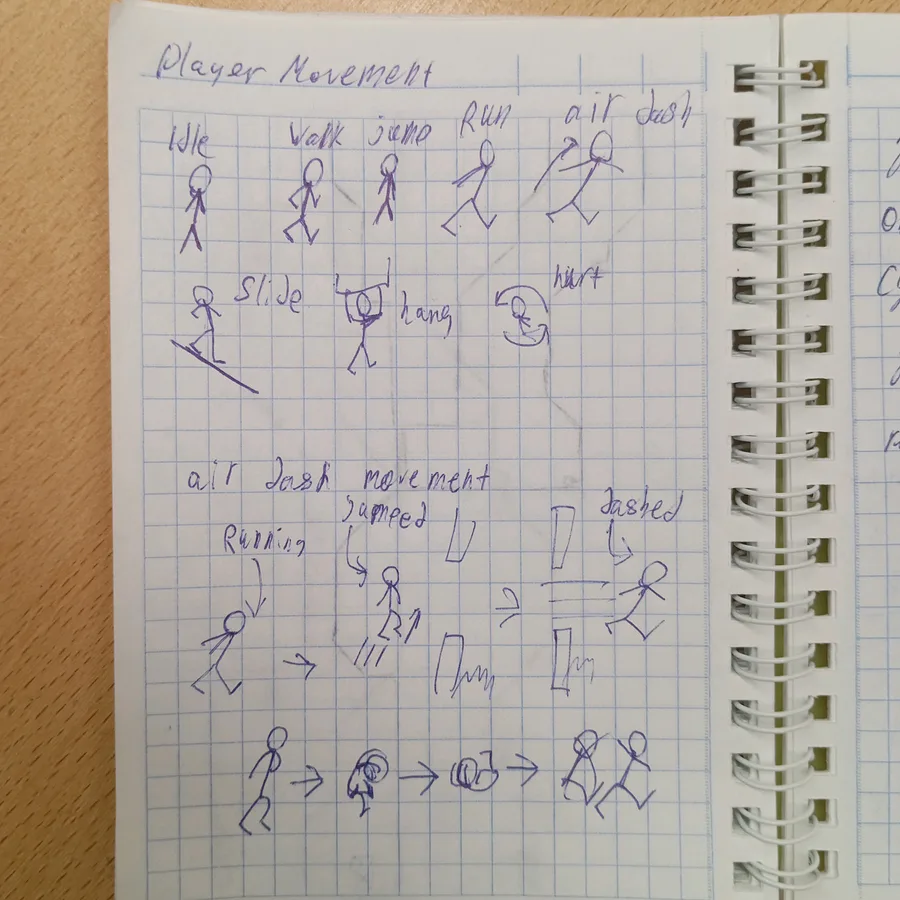 Player Movement
Idle Walk jump Run air dash
Slide hang hurt
air dash movement
Running jumped dashed